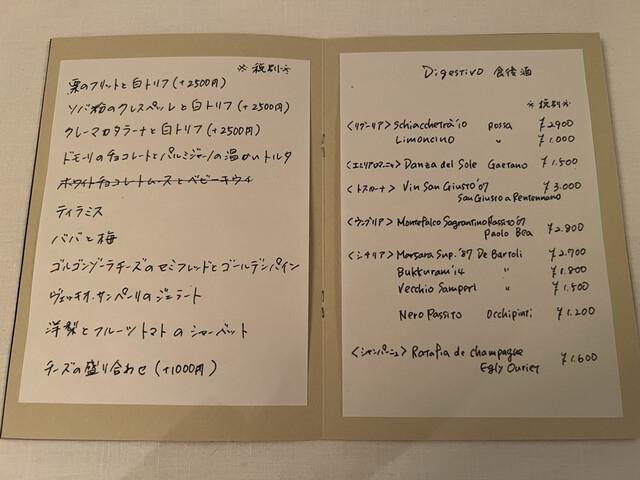 ※税別※
栗のフリットと白トリフ(+2500円)
ソバ粉のクレスペッレと白トリフ(+2500円)
クレーマカタラーナと白トリフ(+2500円)
ドモーリのチョコレートとパルミジャーノの温かいトルタ
ホワイトチョコレートムースとベビーキウイ
ティラミス
ババと梅
ゴルゴンゾーラチーズのセミフレッドとゴールデンパイン
ヴェッキオ・サンペーリのジェラート
洋梨とフルーツトマトのシャーベット
チーズの盛り合わせ(+1000円)
Digestivo 食後酒
※税別※
<リグーリア> Schiacchetrà'10 Possa ¥2900
Limoncino 〃 ¥1.000
<エミリアロマーニャ> Danza del Sole Gaetano ¥1.500
<トスカーナ> Vin San Giusto'07 ¥3.000
San Giusto a Rentennano
<ウンブリア> Montefalco Sagrantino Passito'07
Paolo Bea ¥2.800
<シチリア> Marsara Sup.'87 De Bartoli ¥2.700
Bukkuram'14 〃 ¥1.800
Vecchio Samperi 〃 ¥1.500
Nero Passito Occhipinti ¥1.200
<シャンパーニュ> Ratafia de champagne
Egly Ouriet ¥1.600